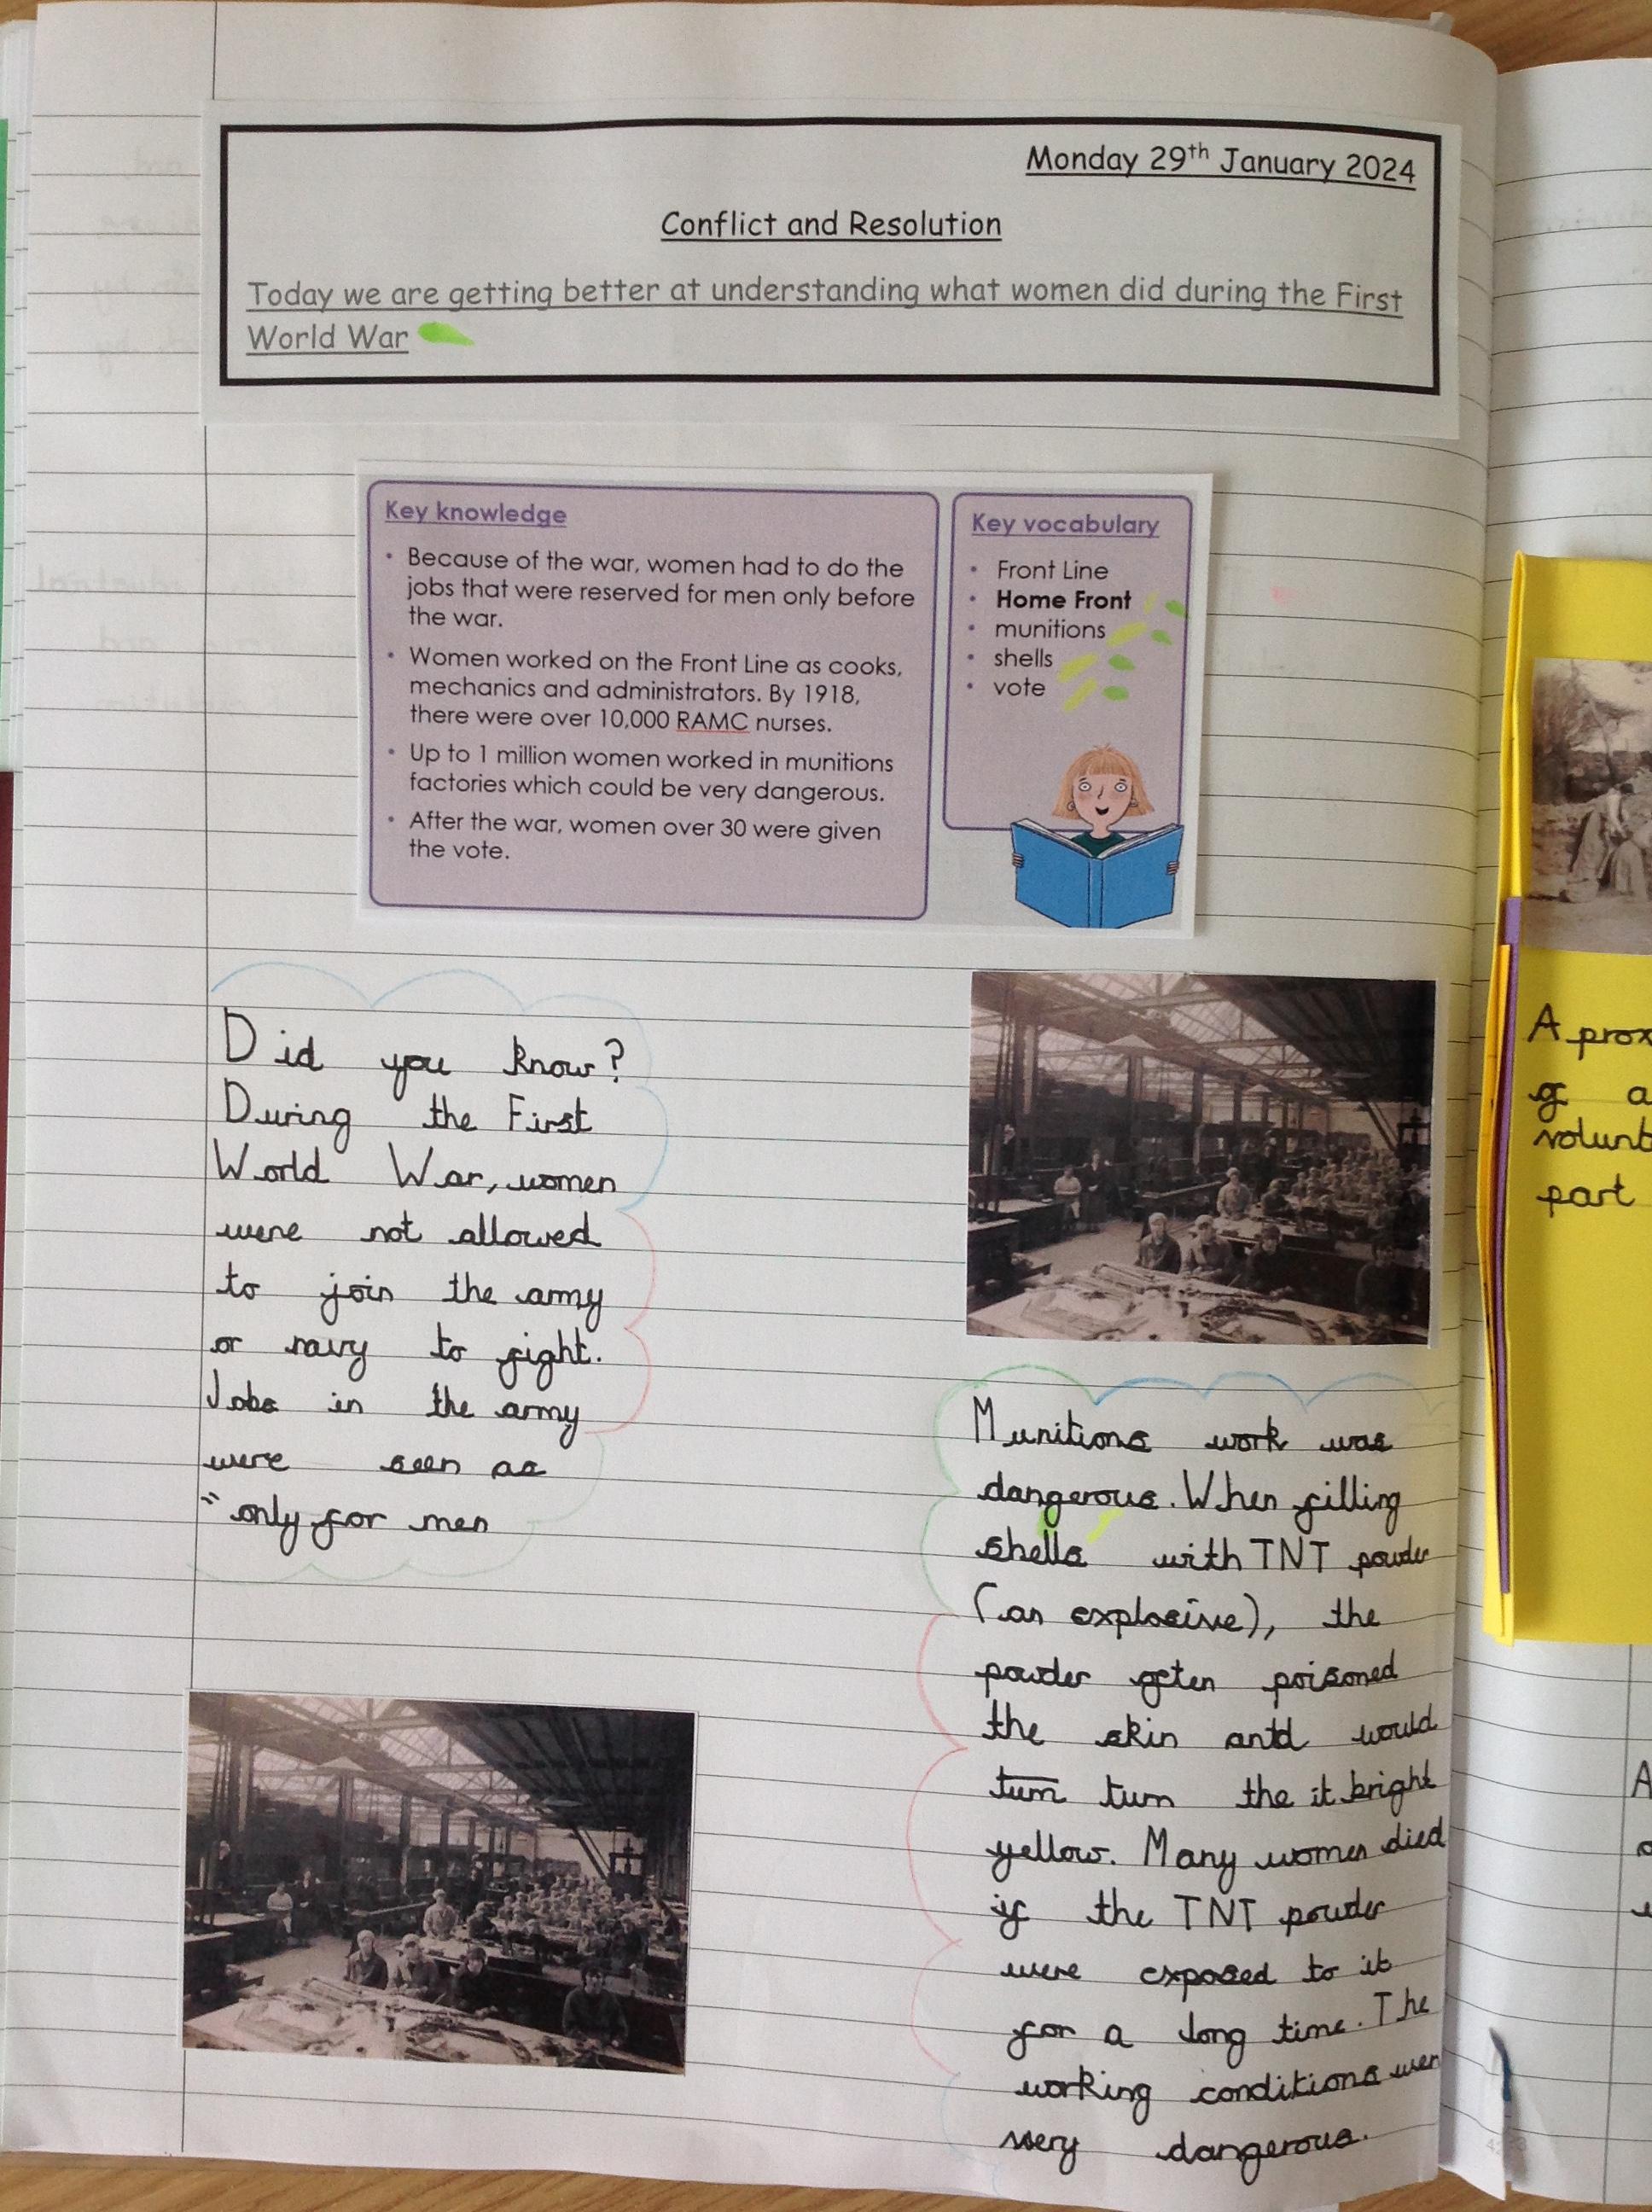 Monday 29th January 2024
Conflict and Resolution
Today we are getting better at understanding what women did during the First
World War
Key knowledge
• Because of the war, women had to do the
jobs that were reserved for men only before
the war.
• Women worked on the Front Line as cooks,
mechanics and administrators. By 1918,
there were over 10,000 RAMC nurses.
• Up to 1 million women worked in munitions
factories which could be very dangerous.
• After the war, women over 30 were given
the vote.
Key vocabulary
• Front Line
• Home Front
• munitions
• shells
• vote
Did you know?
During the First
World War, women
were not allowed
to join the army
or navy to fight.
Jobs in the army
were seen as
"only for men
Munitions work was
dangerous. When filling
shells with TNT powder
(an explosive), the
powder often poisoned
the skin and would
turn turn the it bright
yellow. Many women died
if the TNT powder
were exposed to it
for a long time. The
working conditions wer
very dangerous.
A prox
of a
volunt
part
A